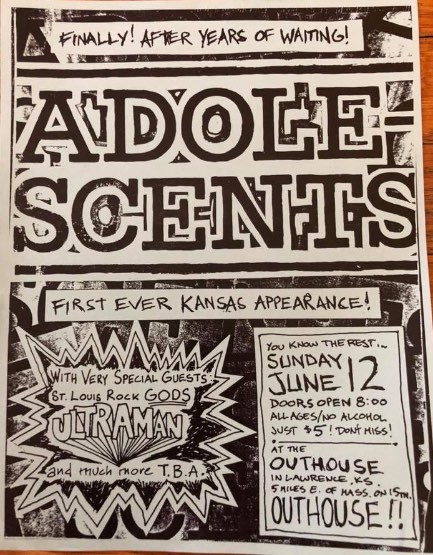 FINALLY! AFTER YEARS OF WAITING!
ADOLE
SCENTS
FIRST EVER KANSAS APPEARANCE!
WITH VERY SPECIAL GUESTS!
ST. LOUIS ROCK GODS
ULTRAMAN
and much more T.B.A.
YOU KNOW THE REST...
SUNDAY
JUNE 12
DOORS OPEN 8:00
ALL AGES/NO ALCOHOL
JUST $5! DON'T MISS!
AT THE
OUTHOUSE
IN LAWRENCE, KS.
5 MILES E. OF MASS. ON 15TH.
OUTHOUSE!!